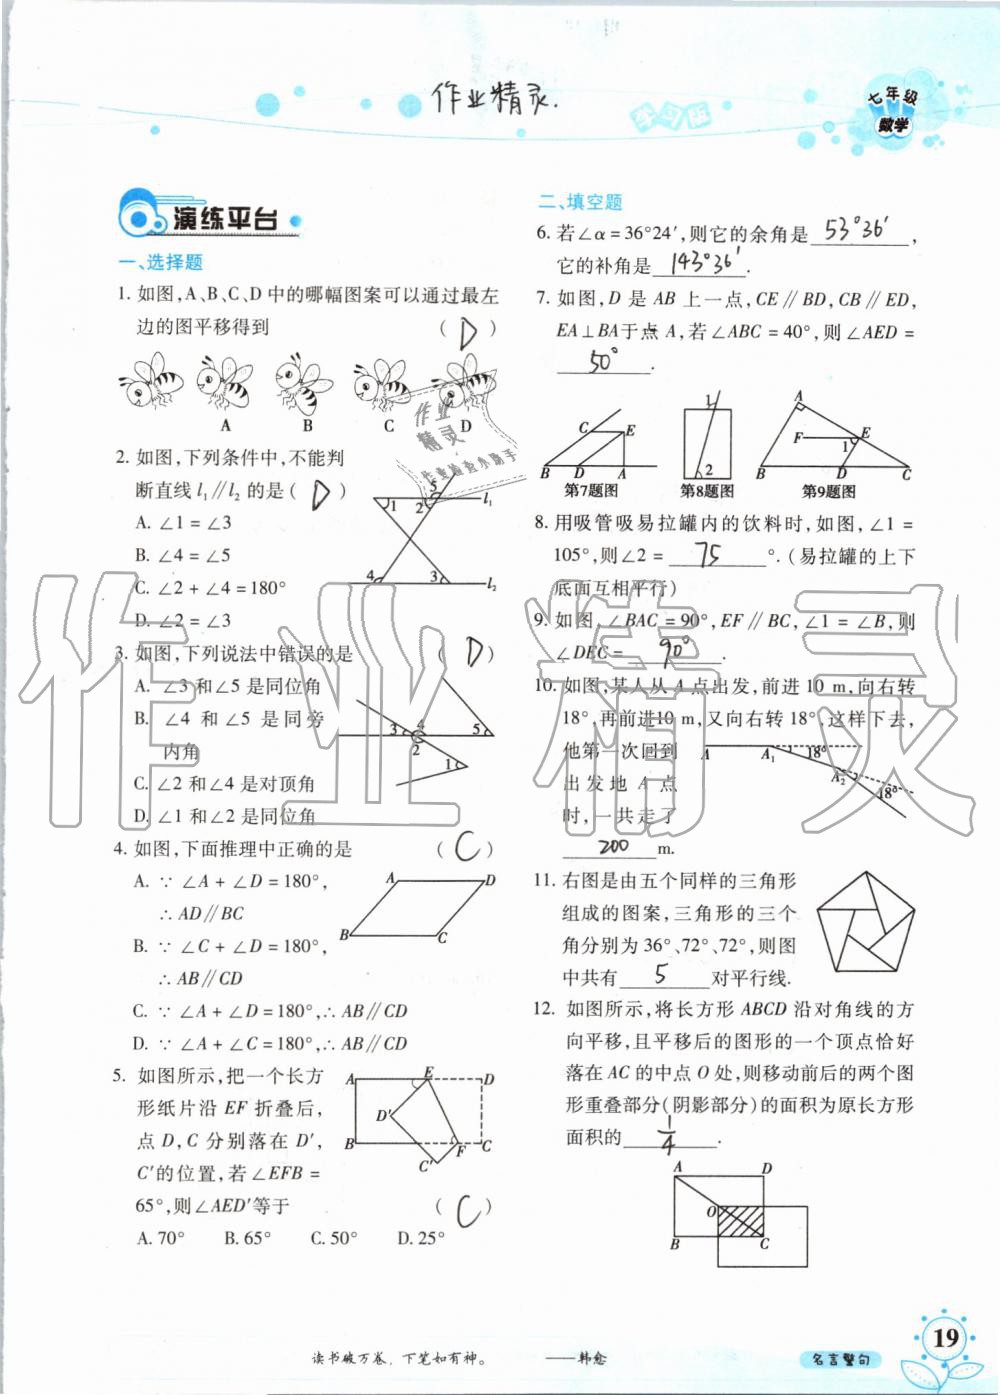 作业精灵.
学习版
七年级
数学
演练平台
一、选择题
1. 如图,A、B、C、D 中的哪幅图案可以通过最左
边的图平移得到 ( D )
A B C D
2. 如图,下列条件中,不能判
断直线 l₁∥l₂ 的是( D )
A. ∠1 = ∠3
B. ∠4 = ∠5
C. ∠2 + ∠4 = 180°
D. ∠2 = ∠3
5
1 2 l₁
4 3 l₂
3. 如图,下列说法中错误的是 ( D )
A. ∠3 和∠5 是同位角
B. ∠4 和∠5 是同旁
内角
C. ∠2 和∠4 是对顶角
D. ∠1 和∠2 是同位角
3 4 5
2
1
4. 如图,下面推理中正确的是 ( C )
A. ∵ ∠A + ∠D = 180°,
∴ AD∥BC
B. ∵ ∠C + ∠D = 180°,
∴ AB∥CD
C. ∵ ∠A + ∠D = 180°,∴ AB∥CD
D. ∵ ∠A + ∠C = 180°,∴ AB∥CD
A D
B C
5. 如图所示,把一个长方
形纸片沿 EF 折叠后,
点 D,C 分别落在 D′,
C′的位置,若∠EFB =
65°,则∠AED′等于 ( C )
A. 70° B. 65° C. 50° D. 25°
A E D
D′
B F C
C′
二、填空题
6. 若∠α = 36°24′,则它的余角是 53°36′,
它的补角是 143°36′.
7. 如图,D 是 AB 上一点,CE∥BD,CB∥ED,
EA⊥BA于点 A,若∠ABC = 40°,则∠AED =
50°.
C E
B D A
第7题图
1
2
第8题图
A
F E
1
B D C
第9题图
8. 用吸管吸易拉罐内的饮料时,如图,∠1 =
105°,则∠2 = 75 °.(易拉罐的上下
底面互相平行)
9. 如图,∠BAC = 90°,EF∥BC,∠1 = ∠B,则
∠DEC = 90°.
10. 如图,某人从 A 点出发,前进 10 m,向右转
18°,再前进10 m,又向右转 18°,这样下去,
他第一次回到
出发地 A 点
时,一共走了
200 m.
A A₁ 18°
A₂ 18°
11. 右图是由五个同样的三角形
组成的图案,三角形的三个
角分别为 36°、72°、72°,则图
中共有 5 对平行线.
12. 如图所示,将长方形 ABCD 沿对角线的方
向平移,且平移后的图形的一个顶点恰好
落在 AC 的中点 O 处,则移动前后的两个图
形重叠部分(阴影部分)的面积为原长方形
面积的 1/4.
A D
O
B C
作业精灵
作业
精灵
作业检查小助手
读书破万卷,下笔如有神。 ——韩愈
名言警句
19